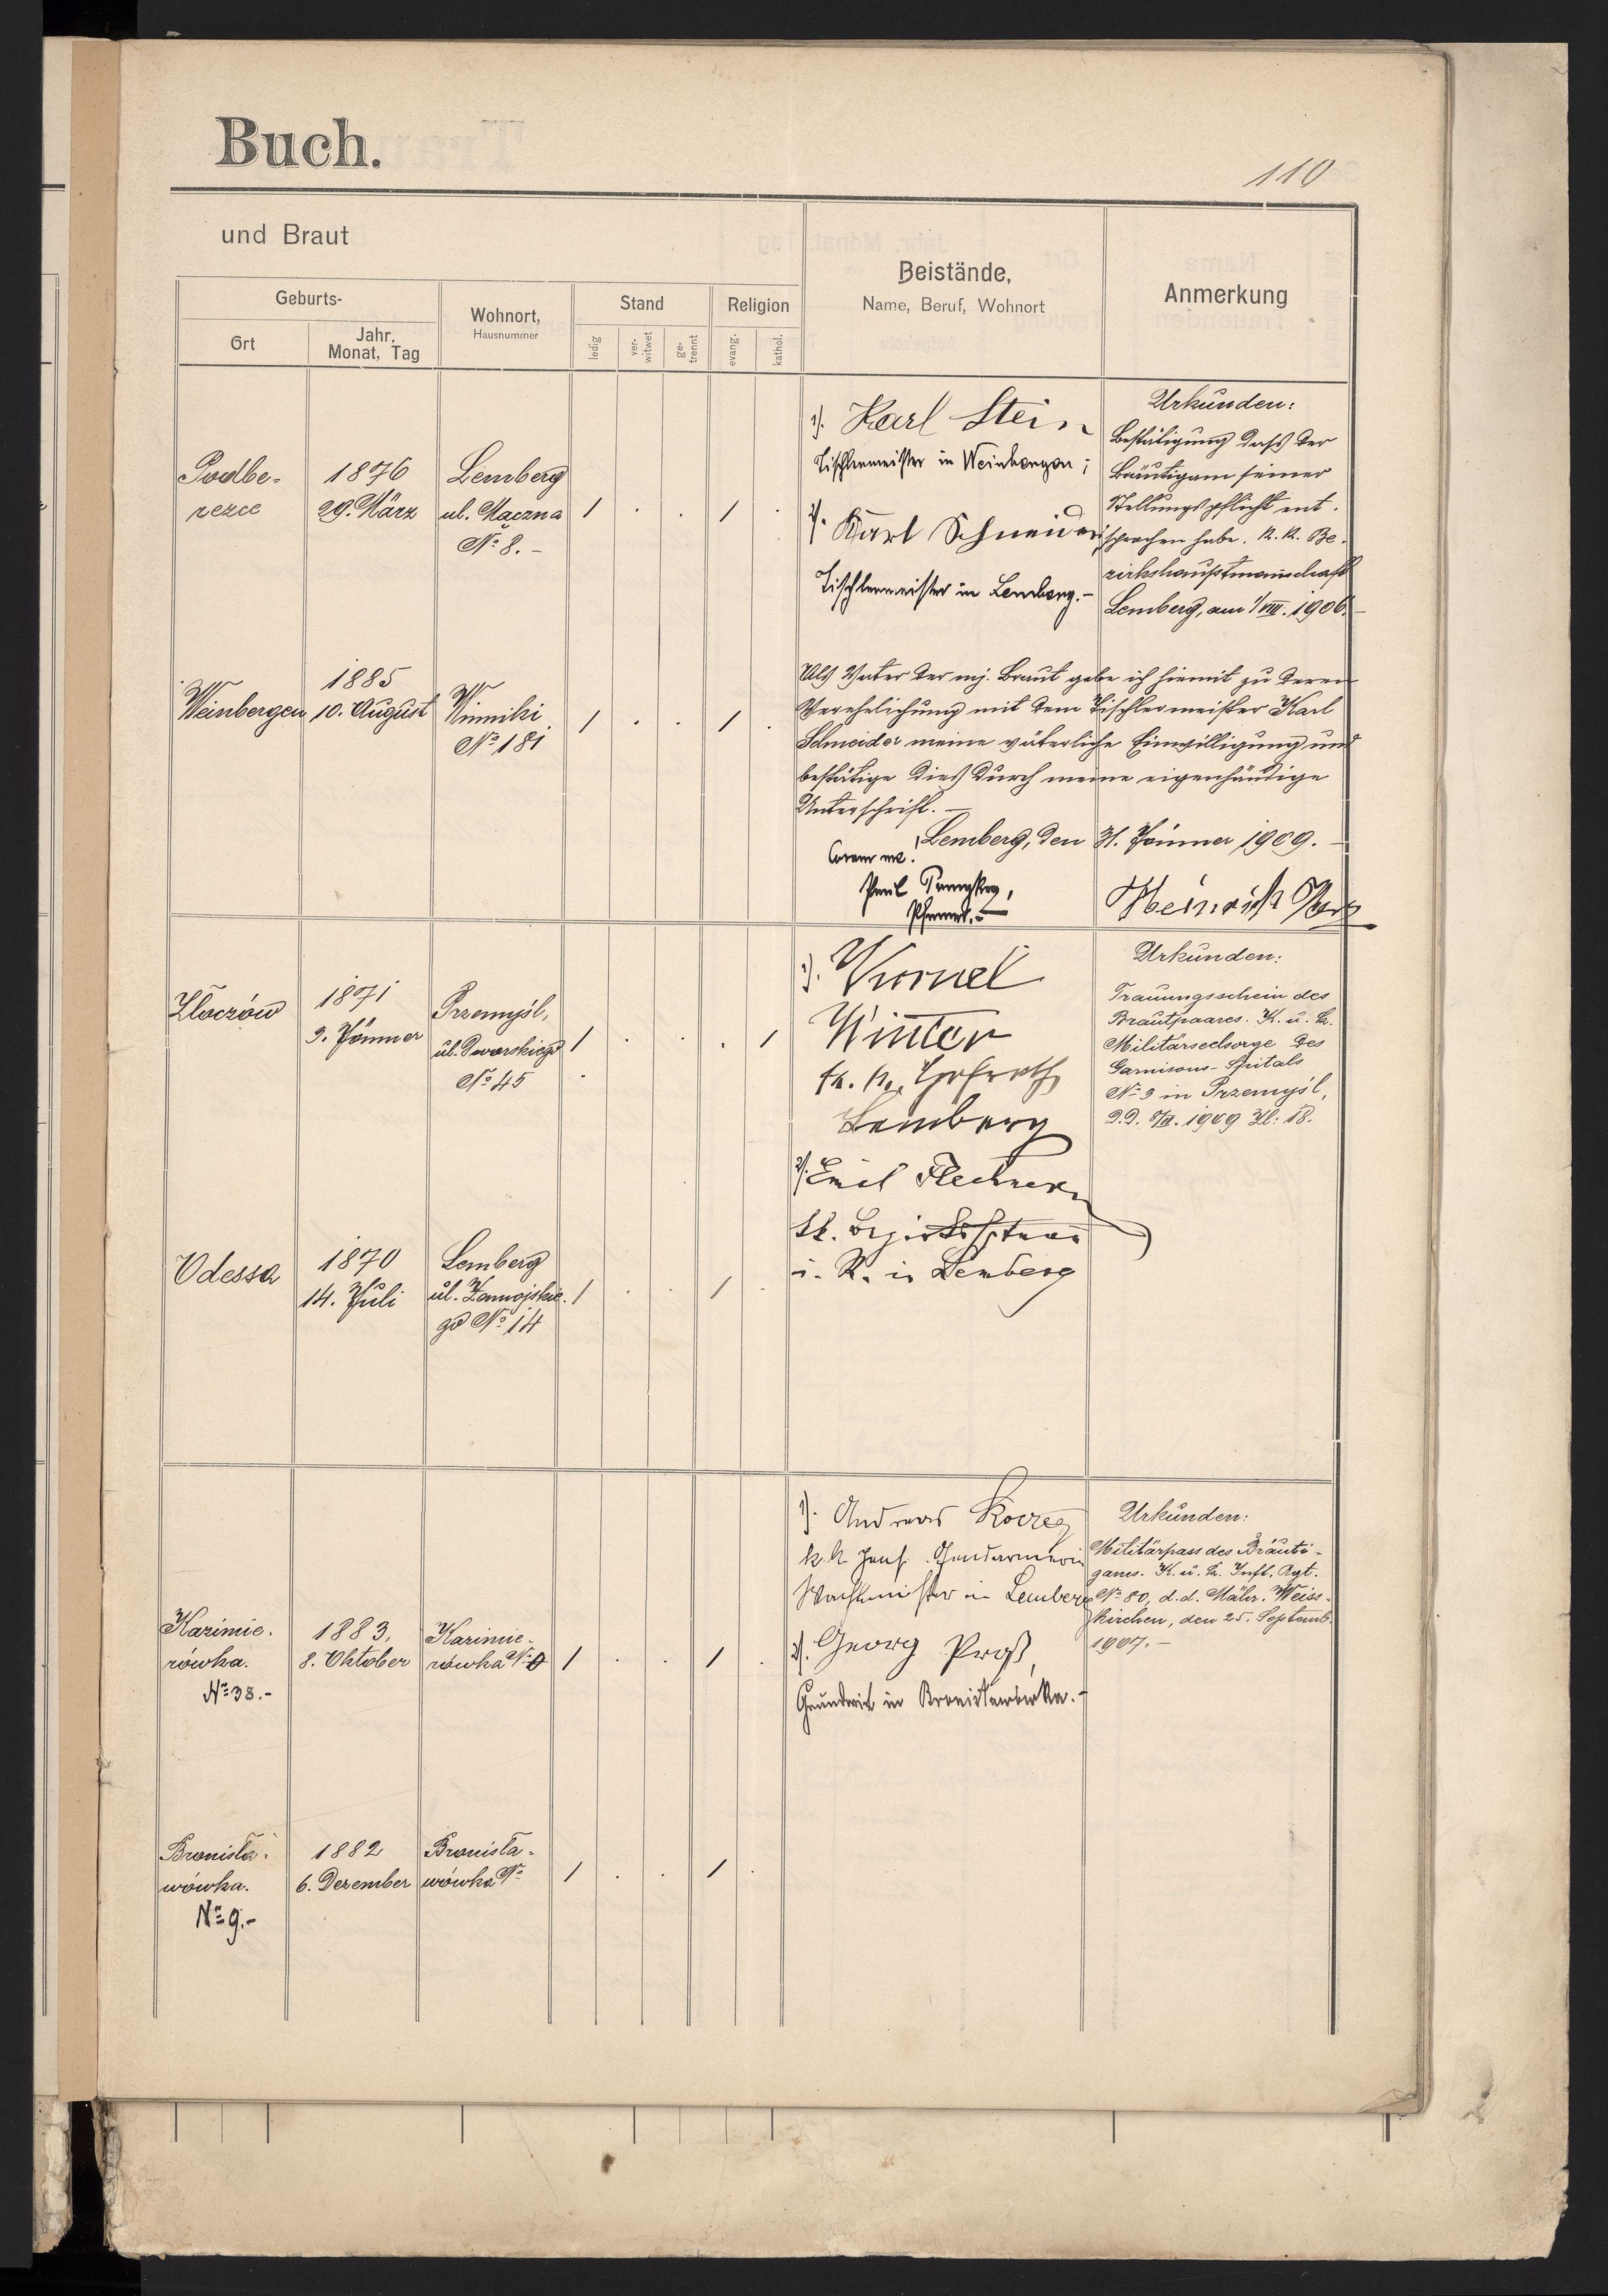 Buch.
110
und Braut
Geburts-
Ort
Jahr, Monat, Tag
Wohnort,
Hausnummer
Stand
ledig
ver-
witwet
ge-
trennt
Religion
evang.
kathol.
Beistände,
Name, Beruf, Wohnort
Anmerkung
Podbe-
rezce
1876
29. März
Lemberg
ul. Mączna
№ 8. –
1/. Karl Stein
Tischlermeister in Weinbergen;
2/. Karl Schneider
Tischlermeister in Lemberg. –
Urkunden:
Bestätigung dass der
Bräutigam seiner
Stellungspflicht ent-
sprochen habe. K. K. Be-
zirkshauptmannschaft
Lemberg, am 1/VIII. 1906. –
Weinbergen
1885
10. August
Winniki
№ 181
Als Vater der mj. Braut gebe ich hiemit zu deren
Verehelichung mit dem Tischlermeister Karl
Schneider meine väterliche Einwilligung und
bestätige dies durch meine eigenhändige
Unterschrift. –
Lemberg, den 31. Jänner 1909. –
Coram me.
Paul
Pfarrer. –
Heinrich
Złoczów
1871
9. Jänner
Przemyśl,
ul. Dworskiego
№ 45
1/. Kornel
Winter
k. k. Hofrath
Lemberg
2/. Emil
i. R. in Lemberg
Urkunden:
Trauungsschein des
Brautpaares. K. u. k.
Militärseelsorge des
Garnisons-Spitals
№ 3 in Przemyśl,
d.d. 8/II. 1909 Zl: 18.
Odessa
1870
14. Juli
Lemberg
ul. Zamojskie-
go № 14
Kazimie-
rówka.
№ 38. –
1883,
8. Oktober
Kazimie-
rówka №
1/. Andreas
k. k. Gendarmerie
Wachtmeister in Lemberg
2/. Georg Proß,
Grundwirt in Bronisławówka. –
Urkunden:
Militärpass des Bräuti-
gams. K. u. k. Inft. Rgt.
№ 80, d.d. Mähr. Weiss-
kirchen, den 25. Septemb.
1907. –
Bronisła-
wówka.
№ 9. –
1882
6. Dezember
Bronisła-
wówka №